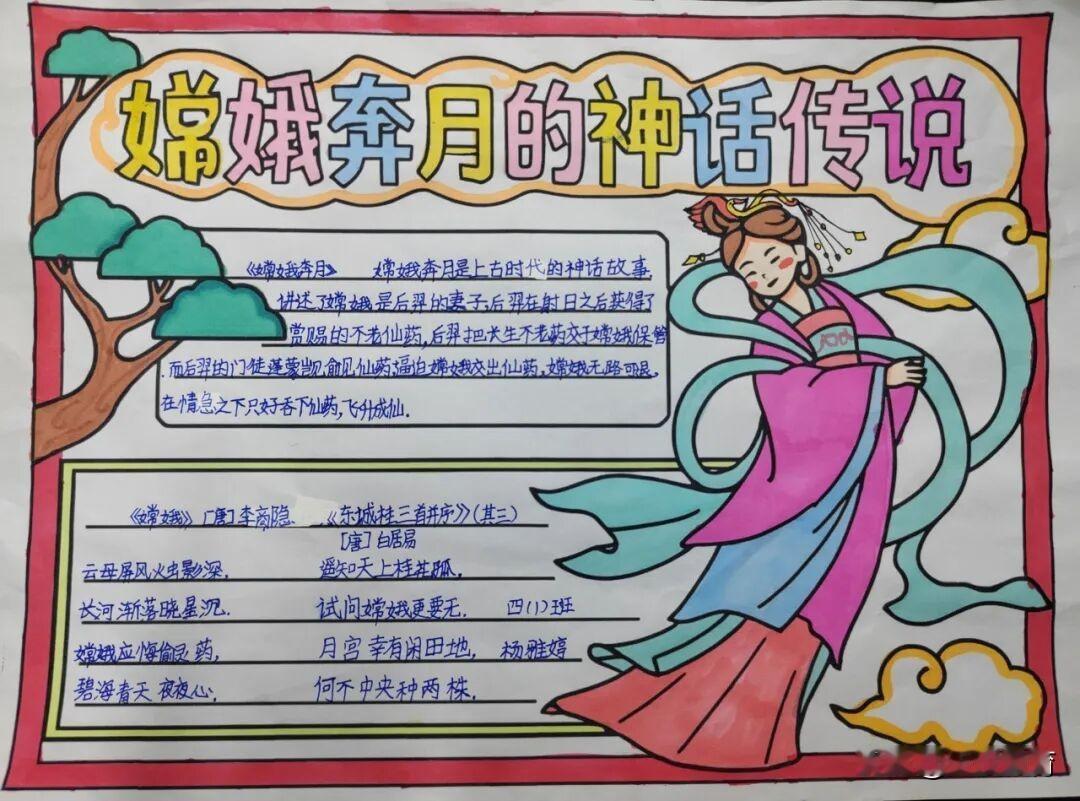 嫦娥奔月的神话传说
《嫦娥奔月》 嫦娥奔月是上古时代的神话故事,
讲述了嫦娥是后羿的妻子,后羿在射日之后获得了
赏赐的不老仙药,后羿把长生不老药交于嫦娥保管
.而后羿的门徒蓬蒙觊觎见仙药逼迫嫦娥交出仙药,嫦娥无路可退,
在情急之下只好吞下仙药,飞升成仙.
《嫦娥》[唐]李商隐. 《东城桂三首并序》(其三)
[唐]白居易
云母屏风火虫影深. 遥知天上桂花孤.
长河渐落晓星沉. 试问嫦娥更要无. 四(1)班
嫦娥应悔偷灵药, 月宫幸有闲田地, 杨雅婷
碧海青天夜夜心. 何不中央种两株.